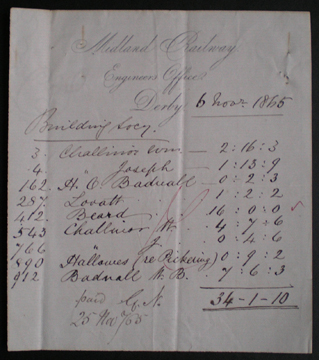 Midland Railway
Engineers Office
Derby 6 Novr 1865
Building Socy:
3 Challinor Wm — 2:16:3
4 " Joseph — 1:13:9
162. H. C. Badnall — 0:2:3
287. Lovatt — 1:2:2
412. Beard — 16:0:0
543 Challinor W. 4:7:6
766 " J. 0:4:6
890 Hallowes (re Pickering) 0:9:2
912 Badnall W. B. 7:6:3
34-1-10
paid
25 Nov /65